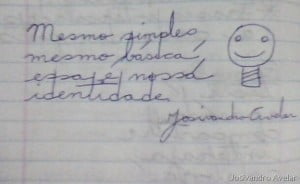 Mesmo simples,
mesmo básica,
essa é nossa
identidade.
Josivandro Avelar
Josivandro Avelar